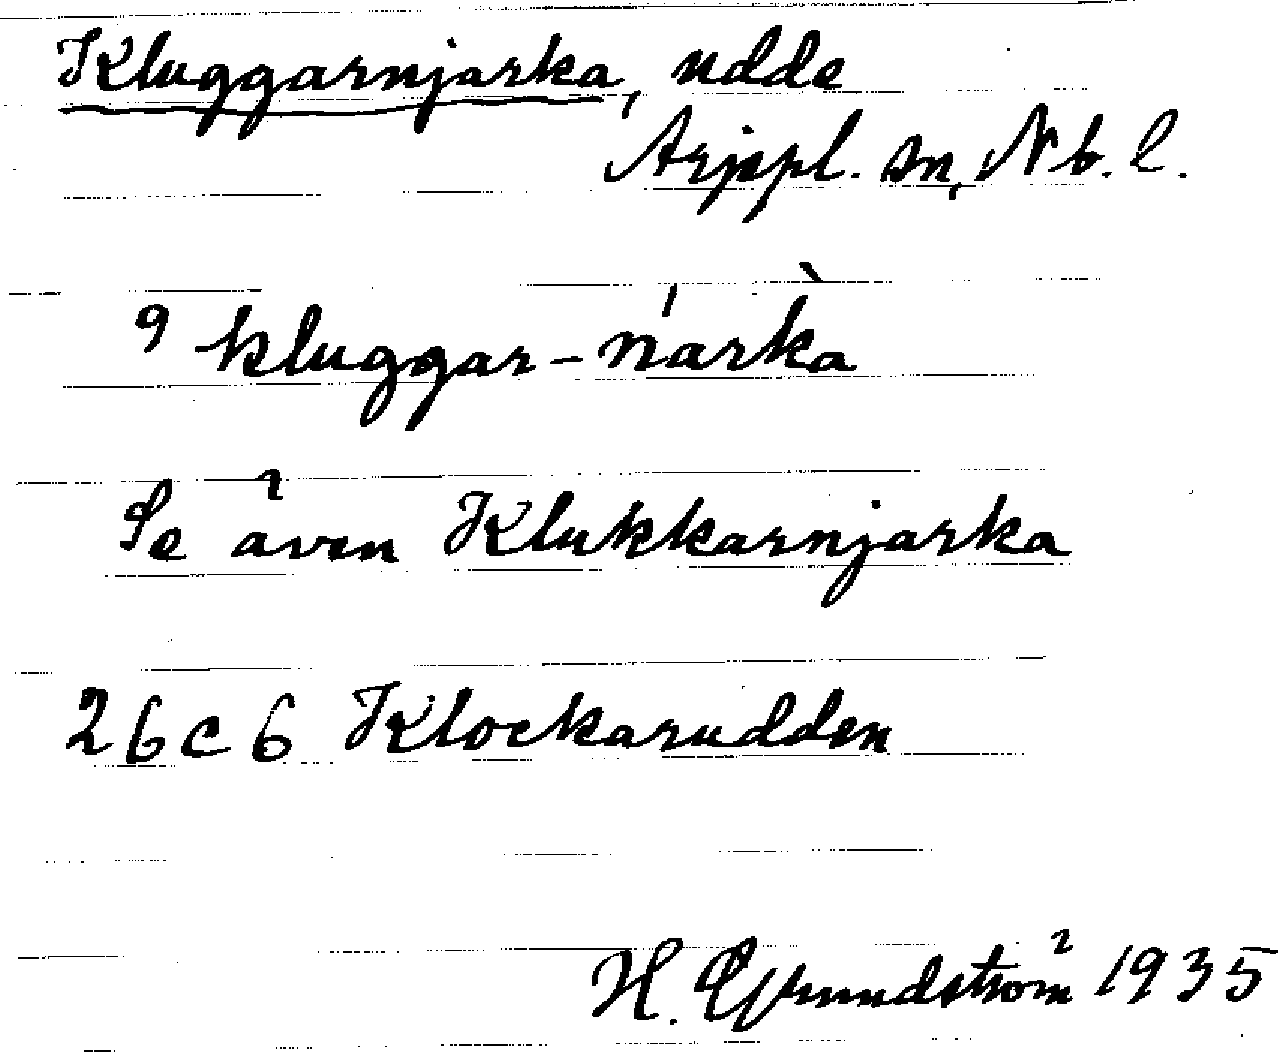 Kluggarnjarka, udde
Arjepl. sn, Nb. l.
9 kluggar-ńarkà
Se även Klukkarnjarka
26 c 6 Klockarudden
H. Grundström 1935